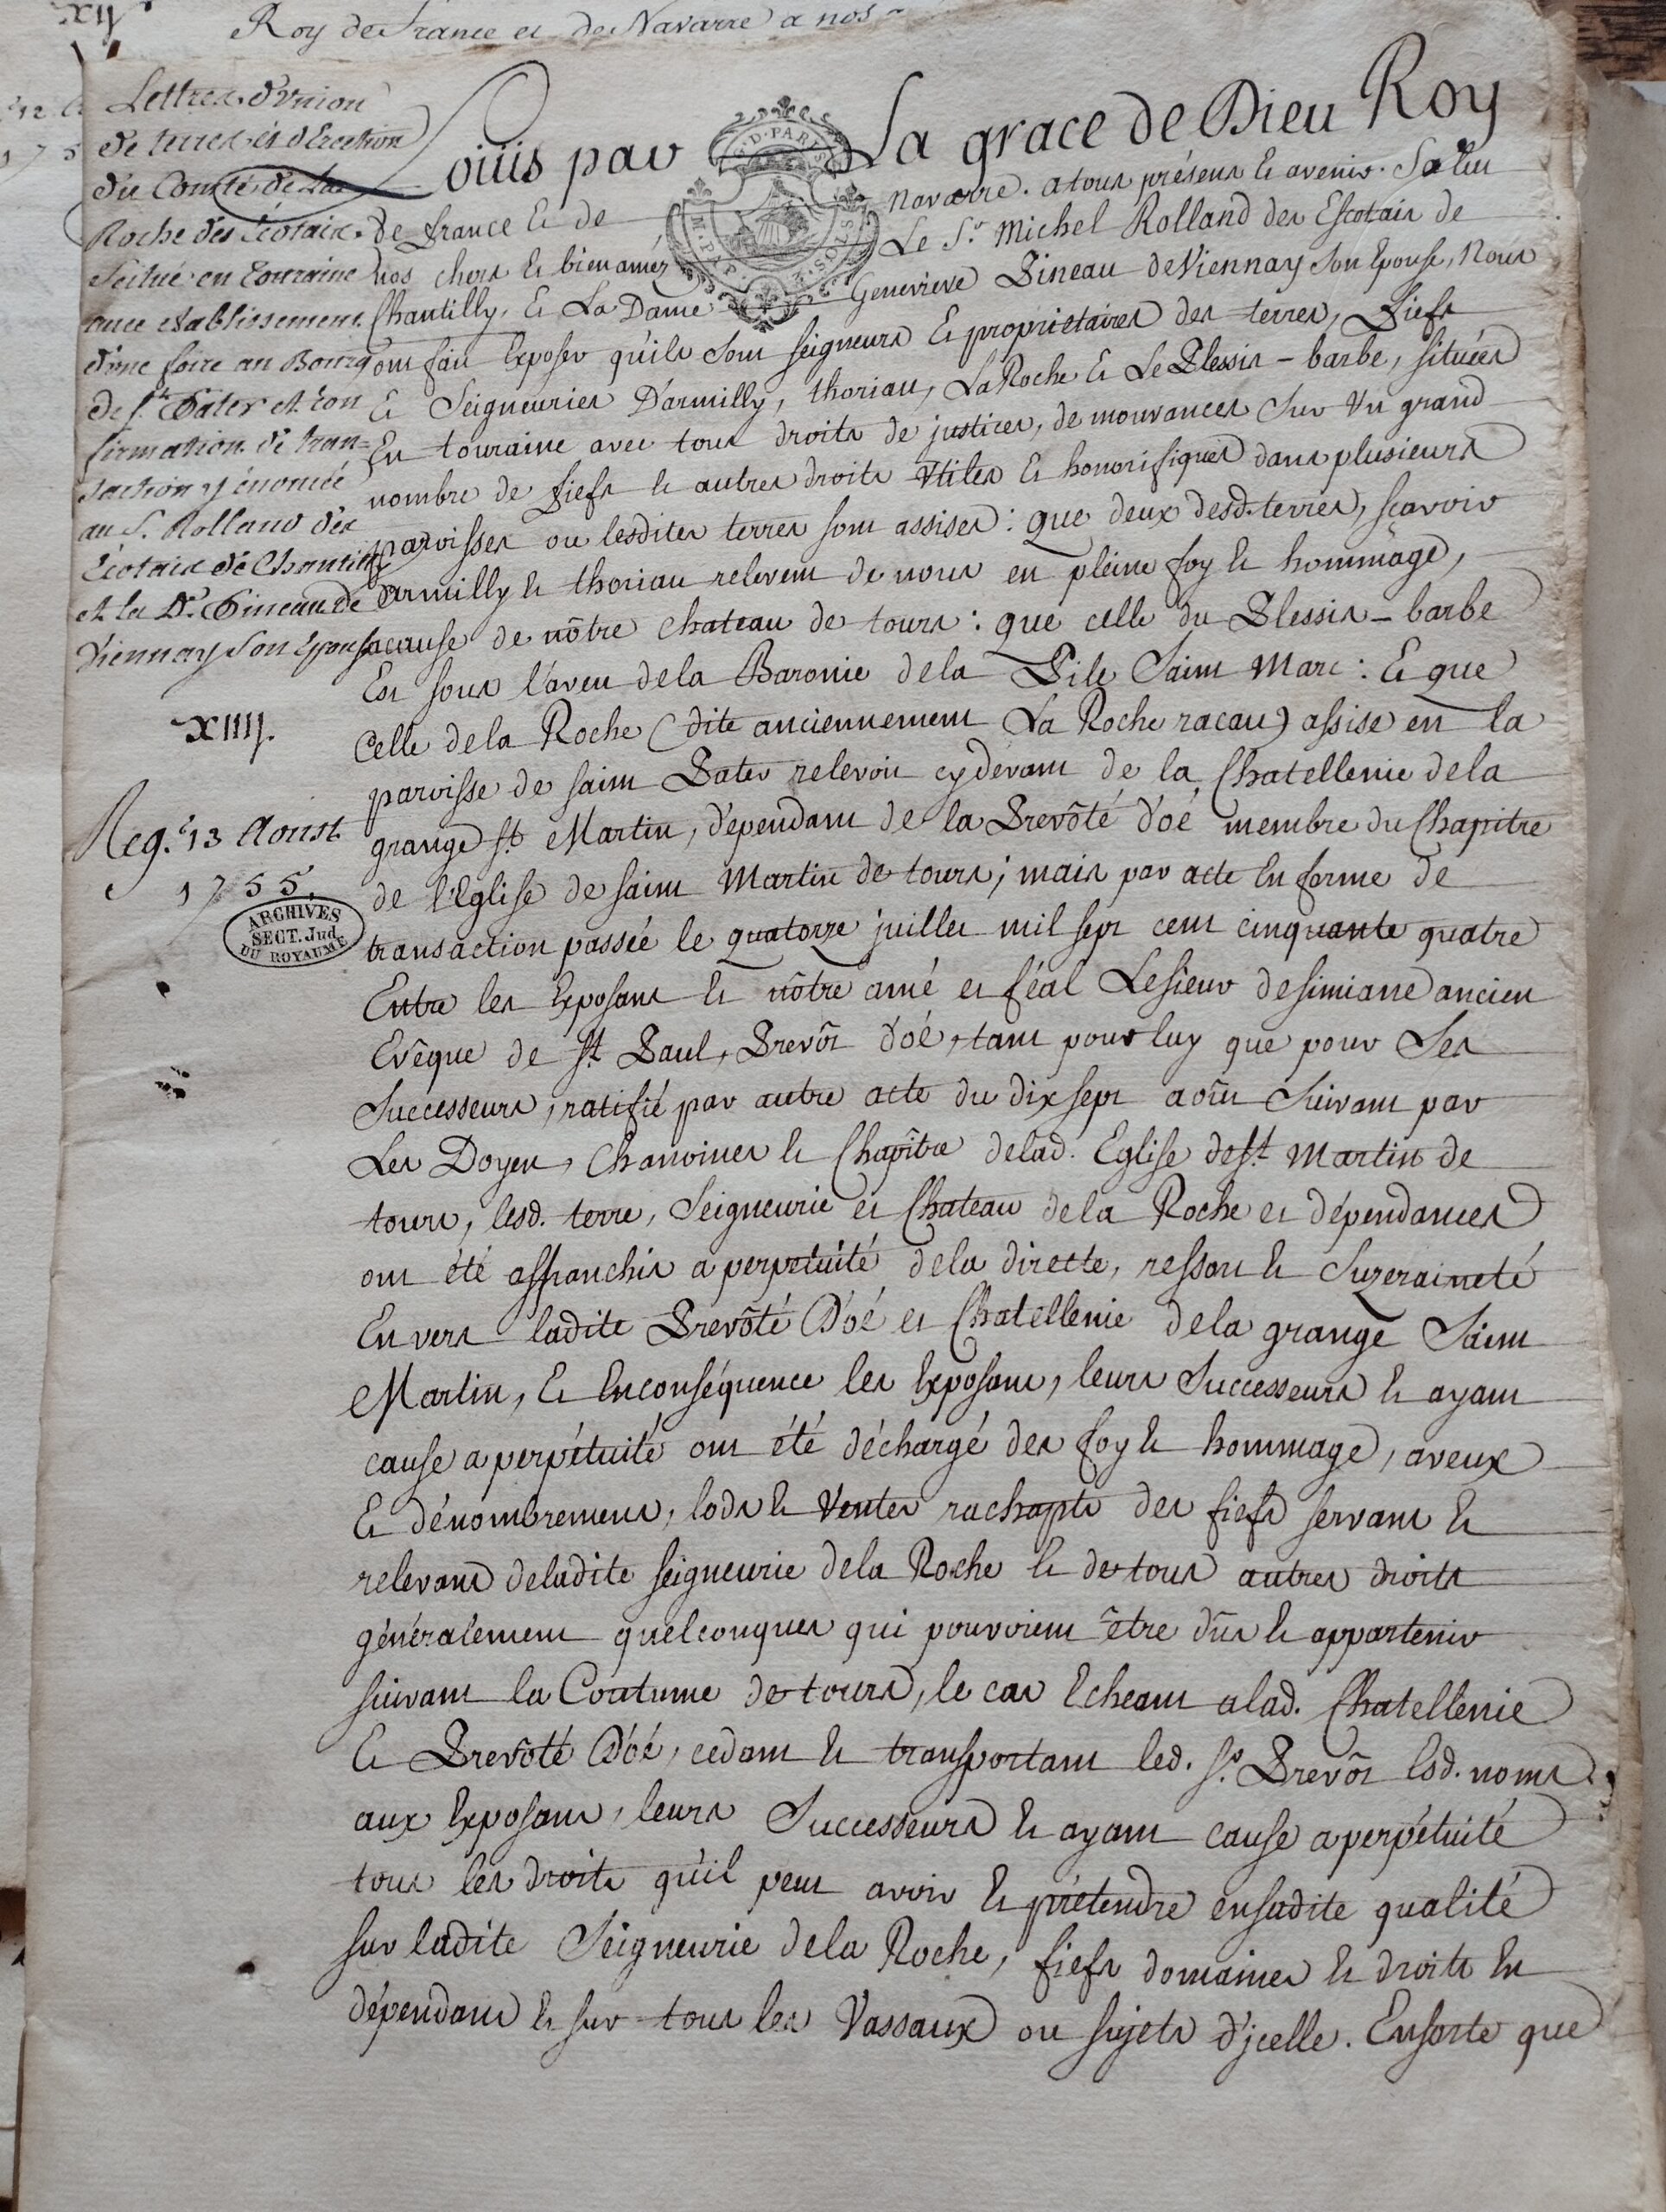 xiij
Roy de France et de Navarre a nos
Lettres d'Union
de terres et d'Erection
du Comté de La
Roche des Ecotais
scitué en Touraine
avec etablissement
d'une foire au Bourg
de St. Pater et con
firmation de tran=
saction y énoncée
au S. Rolland des
Ecotais de Chantilly
et la De. Pineau de
Viennay son Epouse
xiiij.
Reg. 13 Aoust
1755.
ARCHIVES
SECT. Jud.
DU ROYAUME
Louis par La grace de Dieu Roy
de france et de Navarre. a tous présens et avenir. Salut
nos chers et bien amez Le Sr. Michel Rolland des Escotais de
Chantilly, et La Dame Genevieve Pineau de Viennay son Epouse, Nous
ont fait Exposer qu'ils sont seigneurs et proprietaires des terres, fiefs
et Seigneuries D'armilly, thoriau, La Roche et Le Plessis - barbe, situées
En touraine avec tous droits de justices, de mouvances sur Un grand
nombre de fiefs et autres droits Utiles et honorifiques dans plusieurs
paroisses ou lesdites terres sont assises : que deux desd. terres, sçavoir
d'armilly et thoriau relevent de nous en pleine foy et hommage,
a cause de nôtre chateau de tours : que celle du Plessis - barbe
Est sous l'aveu de la Baronie de la Pile Saint Marc : Et que
Celle de la Roche (dite anciennement La Roche racau) assise en la
paroisse de saint Pater relevoit cydevant de la Chatellenie de la
grange St. Martin, dépendant de la Prevôté d'oé membre du Chapitre
de l'Eglise de saint Martin de tours ; mais par acte En forme de
transaction passée le quatorze juillet mil sept cent cinquante quatre
Entre les Exposans et nôtre amé et féal Le sieur de simiane ancien
Evêque de St. Paul, Prevôt d'oé, tant pour luy que pour Ses
Successeurs, ratifié par autre acte du dix sept août Suivant par
Les Doyen, Chanoines et Chapitre de lad. Eglise de St. Martin de
tours, lesd. terre, Seigneurie et Chateau de la Roche et dépendances
ont été affranchis a perpetuité de la directe, ressort et Suzeraineté
Envers ladite Prevôté D'oé et Chatellenie de la grange Saint
Martin, Et En conséquence les Exposans, leurs Successeurs et ayant
cause a perpétuité ont été déchargé des foy et hommage, aveux
Et dénombremens, lods et Ventes rachapts des fiefs servans et
relevans de ladite seigneurie de la Roche et de tous autres droits
généralement quelconques qui pouvoient être dûs et appartenir
suivant la Coutume de tours, le cas Echeant a lad. Chatellenie
Et Prevôté D'oé, cedant et transportant led. Sr. Prevôt Esd. noms
aux Exposans, leurs Successeurs et ayant cause a perpétuité
tous les droits qu'il peut avoir et prétendre en sadite qualité
sur ladite Seigneurie de la Roche, fiefs domaines et droits En
dépendans et sur tous les Vassaux ou sujets d'jcelle. Ensorte que